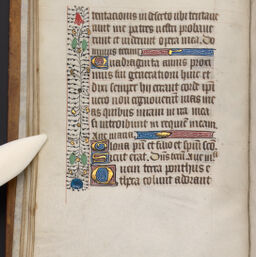 tentationis in deserto ubi temptaue
runt me patres vestri probaue
runt et viderunt opera mea. Do
minus tecum
Quadraginta annis proxi
mus fui generationi huic et
dixi semper hii errant corde ipsi
vero non cognouerunt vias me
as quibus iuraui in ira mea
si introibunt in requiem meam.
Aue maria
Gloria pri et filio et spiritui sco
sicut erat. Aue
Quem terra ponthus e
thera colunt adorant